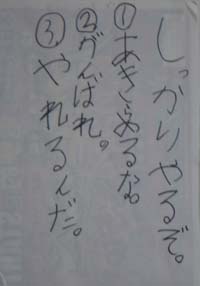 しっかりやるぞ。
①あきらめるな。
②がんばれ。
③やれるんだ。